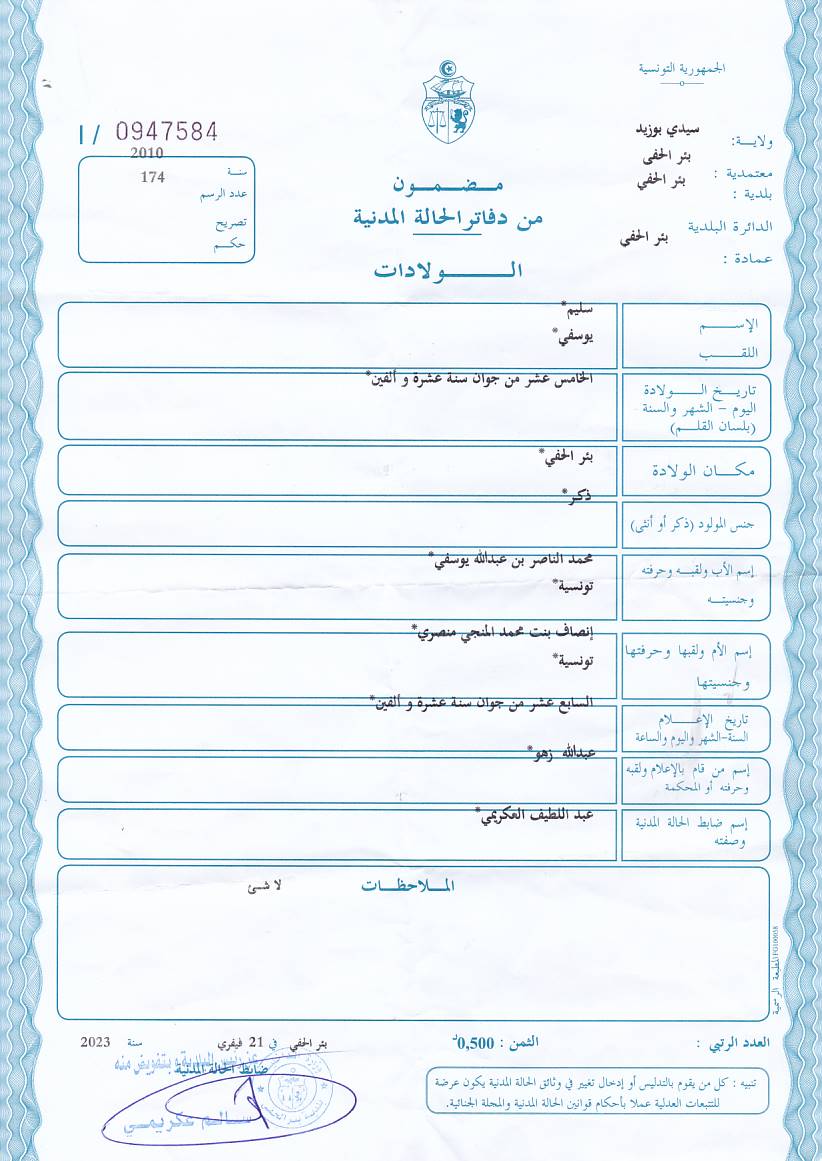 الجمهورية التونسية
ولايـــة: سيدي بوزيد
بئر الحفى
معتمدية :
بئر الحفي
بلدية :
الدائرة البلدية
بئر الحفي
عمادة :
I / 0947584
2010
سنـة
174
عدد الرسم
تصريح
حكـــم
مـــضـــمــــون
من دفاتر الحالة المدنية
الـــــــــولادات
سليم*
الإســـــم
يوسفي*
اللقـــب
الخامس عشر من جوان سنة عشرة و ألفين*
تاريـــخ الـــــــولادة
اليوم – الشهر والسنة
(بلسان القلـــم)
بئر الحفي*
مكـــان الولادة
ذكر*
جنس المولود (ذكر أو أنثى)
محمد الناصر بن عبدالله يوسفي*
إسم الأب ولقبـــه وحرفته
تونسية*
وجنسيتـــه
إنصاف بنت محمد المنجي منصري*
إسم الأم ولقبها وحرفتها
تونسية*
وجنسيتها
السابع عشر من جوان سنة عشرة و ألفين*
تاريخ الإعـــــــلام
السنة-الشهر واليوم والساعة
عبدالله زهو*
إسم من قام بالإعلام ولقبه
وحرفته أو المحكمة
عبد اللطيف العكريمي*
إسم ضابط الحالة المدنية
وصفته
المـــلاحظـــات
لا شئ
المطبعة الرسمية
العدد الرتبي :
الثمن : 0,500د
بئر الحفي في 21 فيفري سنة 2023
عن رئيس البلدية و بتفويض منه
ضابط الحالة المدنية
سـالـم عكريمـي
تنبيه : كل من يقوم بالتدليس أو إدخال تغيير في وثائق الحالة المدنية يكون عرضة
للتتبعات العدلية عملا بأحكام قوانين الحالة المدنية والمجلة الجنائية.